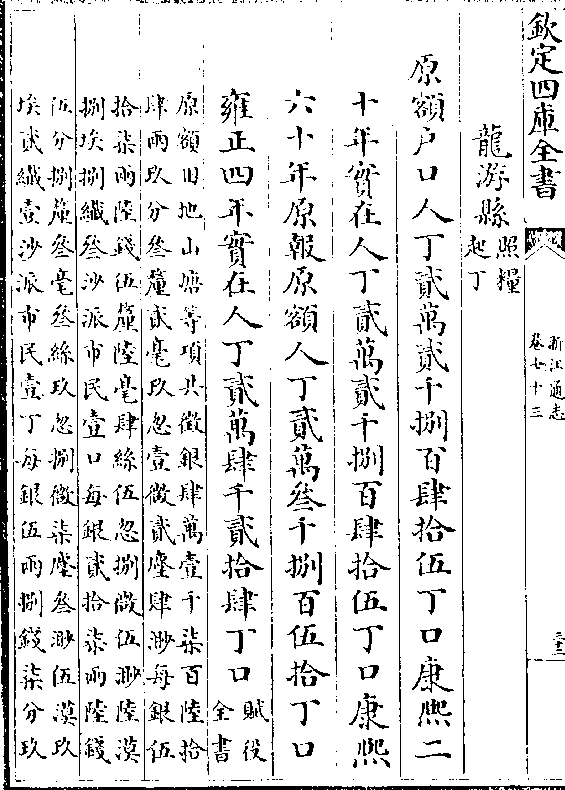 欽定四庫全書
浙江通志
卷七十三
龍游縣
照糧
起丁
原額戶口人丁貳萬貳千捌百肆拾伍丁口康熙二
十年實在人丁貳萬貳千捌百肆拾伍丁口康熙
六十年原報原額人丁貳萬叄千捌百伍拾丁口
雍正四年實在人丁貳萬肆千貳拾肆丁口
賦役
全書
原額田地山塘等項共徵銀肆萬壹千柒百陸拾
肆兩玖分叄釐貳毫玖忽壹微貳塵肆渺每銀伍
拾柒兩陸錢伍釐陸毫肆絲伍忽捌微伍渺陸漠
捌埃捌纖叄沙派市民壹口每銀貳拾柒兩陸錢
伍分捌釐叄毫叄絲玖忽捌微柒塵叄渺伍漠玖
埃貳纖壹沙派市民壹丁每銀伍兩捌錢柒分玖